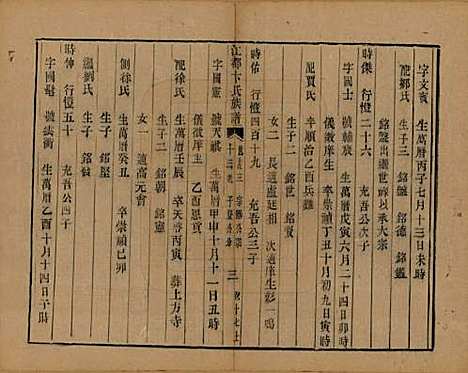 字文賓 生萬曆丙子七月十三日未時
配鄒氏 生子三 銘盤 銘德 銘鑑
銘盤出繼世烋以承大宗
時傑 行橙二十六 充吾公次子
字國士 號輔融 生萬曆戊寅六月二十四日卯時
儀徵庠生 卒崇禎丁丑十月初九日寅時
配賈氏 辛順治乙酉兵難
生子二 銘世 銘磐
女二 長適盧廷相 次適庠生彭一鳴
時佑 行橙四百十九 充吾公三子
江都卞氏族譜
三
字國憲 號天祺 生萬曆甲申十月十一日丑時
儀徵庠生 乙酉恩貢
配徐氏 生萬曆壬辰 卒天啓丙寅 葬上方寺
生子二 銘朝 銘憲
女一 適高元會
側徐氏 生萬曆癸丑 卒崇禎己卯
生子 銘堅
繼劉氏
時伸 行橙五十 充吾公四子
字國彪 號抗衡 生萬曆乙酉十月十四日子時